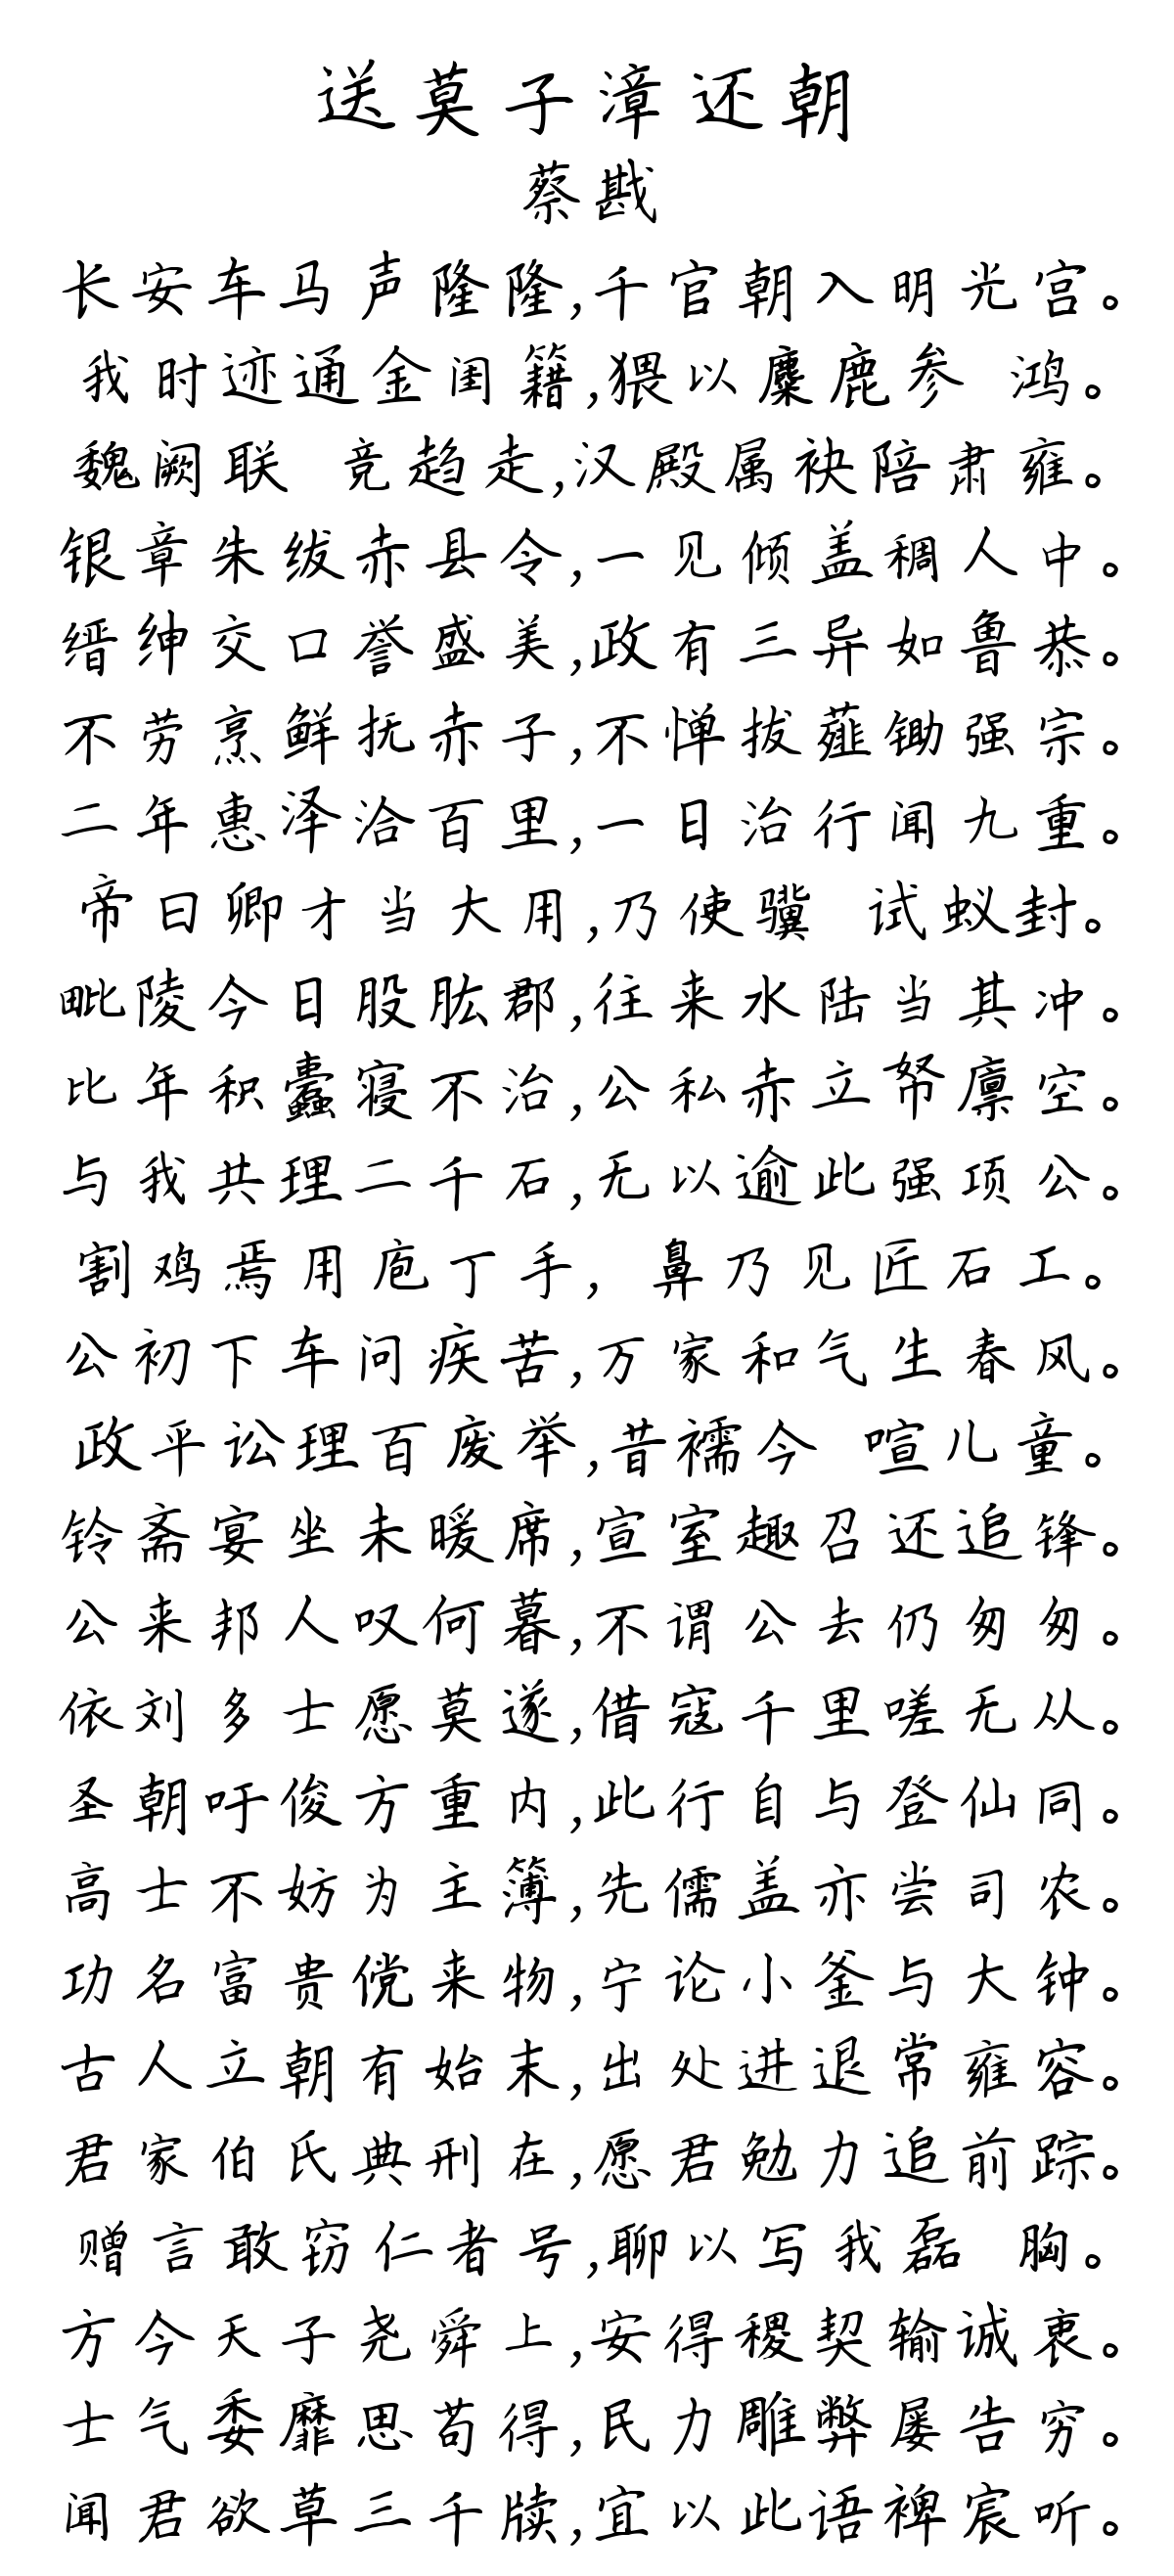 送莫子漳还朝
蔡戡
长安车马声隆隆,千官朝入明光宫。
我时迹通金闺籍,猥以麋鹿参 鸿。
魏阙联 竞趋走,汉殿属袂陪肃雍。
银章朱绂赤县令,一见倾盖稠人中。
缙绅交口誉盛美,政有三异如鲁恭。
不劳烹鲜抚赤子,不惮拔薤锄强宗。
二年惠泽洽百里,一日治行闻九重。
帝曰卿才当大用,乃使骥 试蚁封。
毗陵今日股肱郡,往来水陆当其冲。
比年积蠹寝不治,公私赤立帑廪空。
与我共理二千石,无以逾此强项公。
割鸡焉用庖丁手, 鼻乃见匠石工。
公初下车问疾苦,万家和气生春风。
政平讼理百废举,昔襦今 喧儿童。
铃斋宴坐未暖席,宣室趣召还追锋。
公来邦人叹何暮,不谓公去仍匆匆。
依刘多士愿莫遂,借寇千里嗟无从。
圣朝吁俊方重内,此行自与登仙同。
高士不妨为主簿,先儒盖亦尝司农。
功名富贵傥来物,宁论小釜与大钟。
古人立朝有始末,出处进退常雍容。
君家伯氏典刑在,愿君勉力追前踪。
赠言敢窃仁者号,聊以写我磊 胸。
方今天子尧舜上,安得稷契输诚衷。
士气委靡思苟得,民力雕弊屡告穷。
闻君欲草三千牍,宜以此语裨宸听。